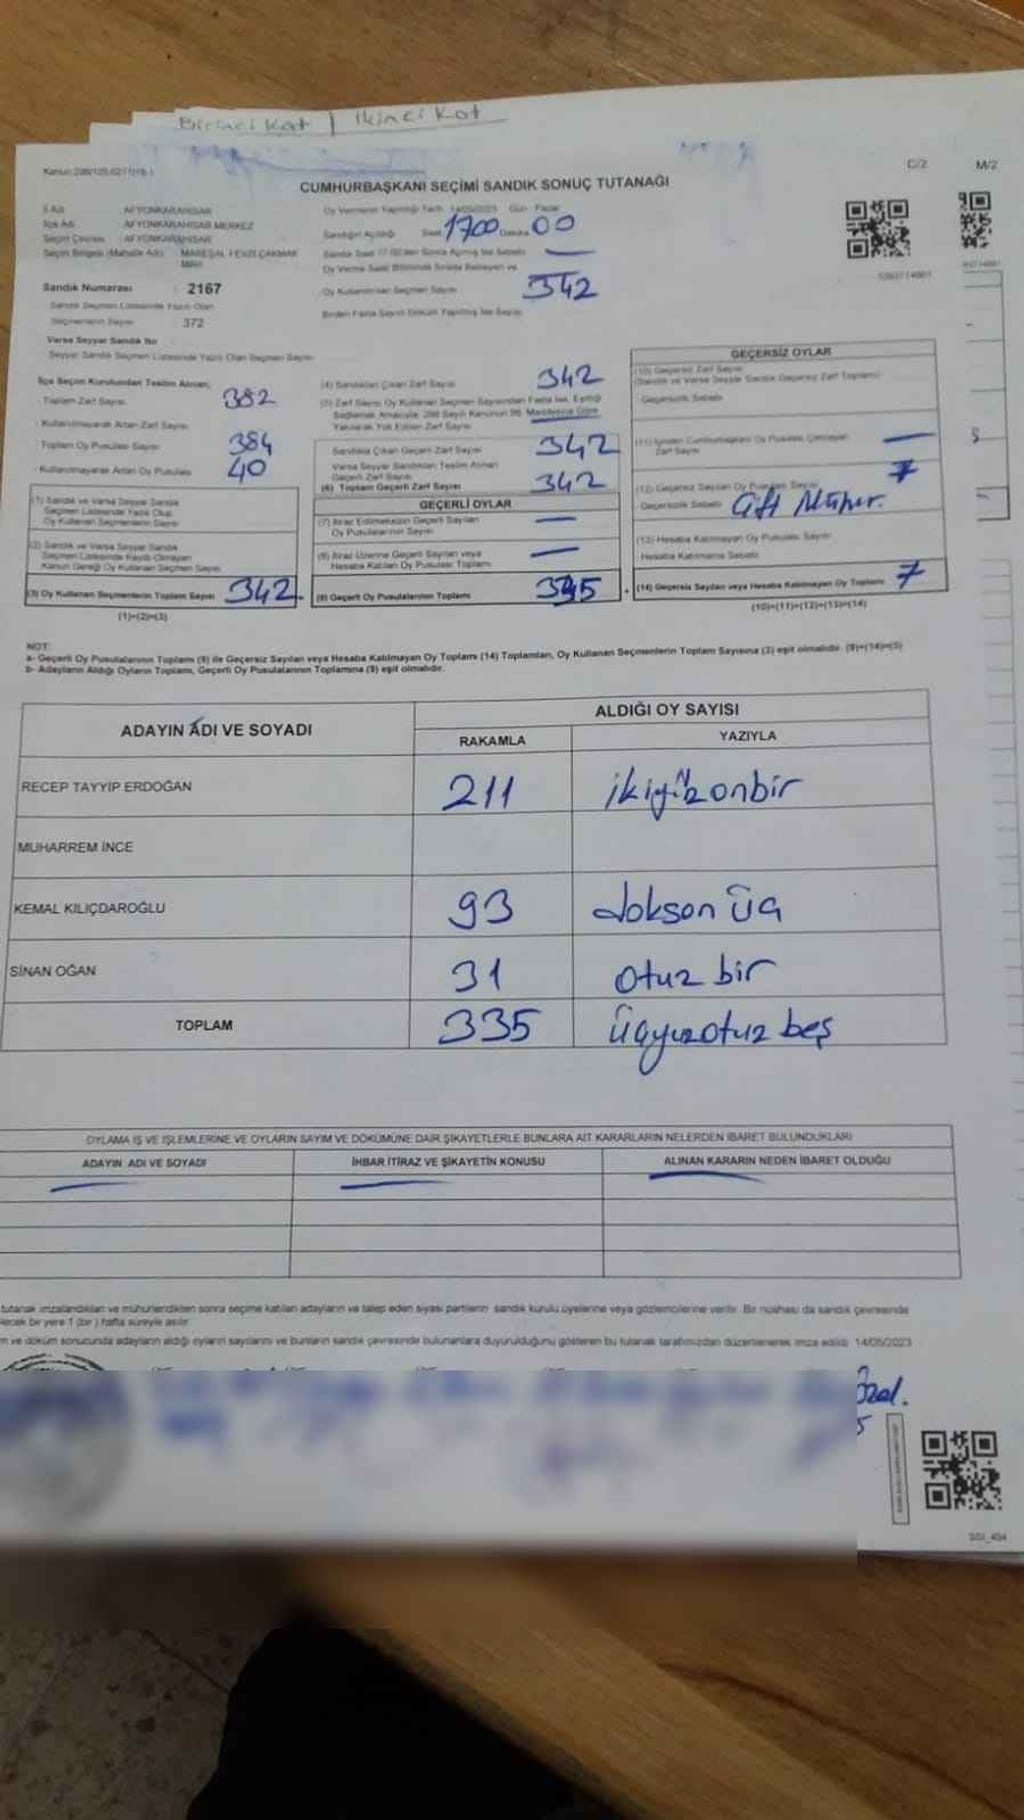 Birinci Kat | İkinci Kat
C/2
M/2
CUMHURBAŞKANI SEÇİMİ SANDIK SONUÇ TUTANAĞI
İl Adı AFYONKARAHİSAR
İlçe Adı AFYONKARAHİSAR MERKEZ
Seçim Çevresi AFYONKARAHİSAR
Seçim Bölgesi (Mahalle Adı) MAREŞAL FEVZİ ÇAKMAK MAH.
Sandık Numarası : 2167
Sandık Seçmen Listesinde Yazılı Olan
Seçmenlerin Sayısı 372
Varsa Seyyar Sandık No
Seyyar Sandık Seçmen Listesinde Yazılı Olan Seçmen Sayısı
Oy Vermenin Yapıldığı Tarih 14/05/2023 Gün Pazar
Sandığın Açıldığı Saat 1700 Dakika 00
Oy Kullandırılan Seçmen Sayısı 342
Birden Fazla Sayım Döküm Yapılmış İse Sayısı
İlçe Seçim Kurulundan Teslim Alınan;
Toplam Zarf Sayısı 382
Kullanılmayarak Artan Zarf Sayısı
Toplam Oy Pusulası Sayısı 384
Kullanılmayarak Artan Oy Pusulası 40
(1) Sandık ve Varsa Seyyar Sandık
Seçmen Listesinde Yazılı Olup
Oy Kullanan Seçmenlerin Sayısı
(2) Sandık ve Varsa Seyyar Sandık
Seçmen Listesinde Kayıtlı Olmayan
Kanun Gereği Oy Kullanan Seçmen Sayısı
(3) Oy Kullanan Seçmenlerin Toplam Sayısı 342
(1)+(2)=(3)
(4) Sandıktan Çıkan Zarf Sayısı 342
Sandıkta Çıkan Geçerli Zarf Sayısı 342
Varsa Seyyar Sandıktan Teslim Alınan
Geçerli Zarf Sayısı
(6) Toplam Geçerli Zarf Sayısı 342
GEÇERLİ OYLAR
(7) İtiraz Edilmeksizin Geçerli Sayılan
Oy Pusulalarının Sayısı —
(8) İtiraz Üzerine Geçerli Sayılan veya
Hesaba Katılan Oy Pusulası Toplamı —
(9) Geçerli Oy Pusulalarının Toplamı
GEÇERSİZ OYLAR
(10) Geçersiz Zarf Sayısı
(Sandık ve Varsa Seyyar Sandık Geçersiz Zarf Toplamı)
Geçersizlik Sebebi
Zarf Sayısı —
(12) Geçersiz Sayılan Oy Pusulası Sayısı 7
Geçersizlik Sebebi Çift Mühür.
(13) Hesaba Katılmayan Oy Pusulası Sayısı
Hesaba Katılmama Sebebi
(14) Geçersiz Sayılan veya Hesaba Katılmayan Oy Toplamı 7
(10)+(11)+(12)+(13)=(14)
NOT:
a- Geçerli Oy Pusulalarının Toplamı (9) ile Geçersiz Sayılan veya Hesaba Katılmayan Oy Toplamı (14) Toplamları, Oy Kullanan Seçmenlerin Toplam Sayısına (3) eşit olmalıdır. (9)+(14)=(3)
b- Adayların Aldığı Oyların Toplamı, Geçerli Oy Pusulalarının Toplamına (9) eşit olmalıdır.
ADAYIN ADI VE SOYADI
ALDIĞI OY SAYISI
RAKAMLA YAZIYLA
RECEP TAYYİP ERDOĞAN 211 ikiyüzonbir
MUHARREM İNCE
KEMAL KILIÇDAROĞLU 93 doksan üç
SİNAN OĞAN 31 otuz bir
TOPLAM 335 üçyüzotuz beş
OYLAMA İŞ VE İŞLEMLERİNE VE OYLARIN SAYIM VE DÖKÜMÜNE DAİR ŞİKAYETLERLE BUNLARA AİT KARARLARIN NELERDEN İBARET BULUNDUKLARI
ADAYIN ADI VE SOYADI İHBAR İTİRAZ VE ŞİKAYETİN KONUSU ALINAN KARARIN NEDEN İBARET OLDUĞU
tutanak imzalandıktan ve mühürlendikten sonra seçime katılan adayların ve talep eden siyasi partilerin sandık kurulu üyelerine veya gözlemcilerine verilir. Bir nüshası da sandık çevresinde
lecek bir yere 1 (bir) hafta süreyle asılır.
m ve döküm sonucunda adayların aldığı oyların sayılarını ve bunların sandık çevresinde bulunanlara duyurulduğunu gösteren bu tutanak tarafımızdan düzenlenerek imza edildi. 14/05/2023
Özel.